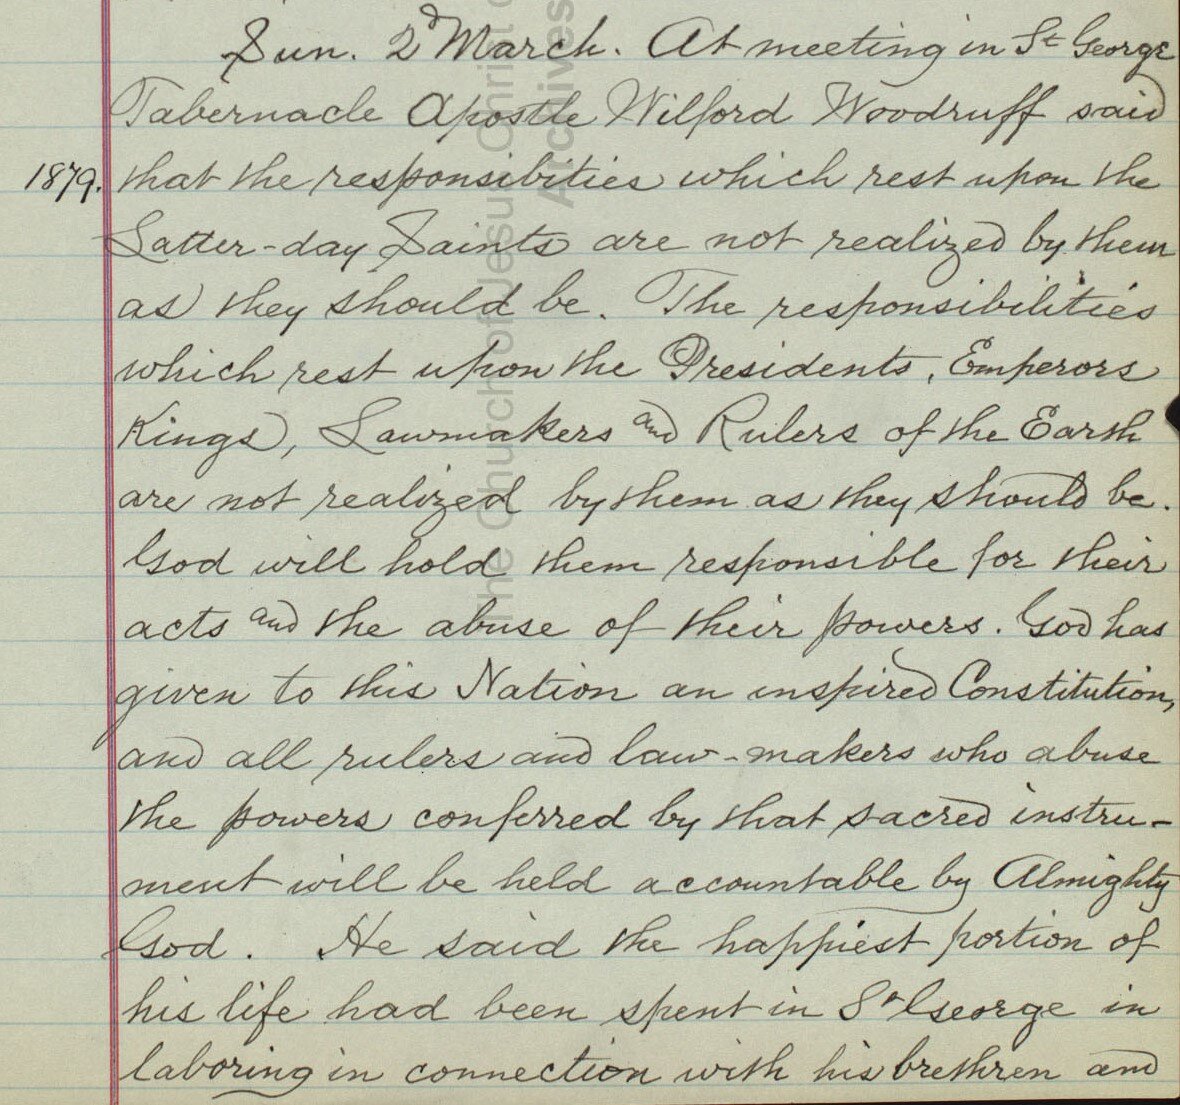 Sun. 2d March. At meeting in St George
Tabernacle Apostle Wilford Woodruff said
1879. that the responsibities which rest upon the
Latter-day Saints are not realized by them
as they should be. The responsibilities
which rest upon the Presidents, Emperors
Kings, Lawmakers and Rulers of the Earth
are not realized by them as they should be.
God will hold them responsible for their
acts and the abuse of their powers. God has
given to this Nation an inspired Constitution,
and all rulers and law-makers who abuse
the powers conferred by that sacred instru-
ment will be held accountable by Almighty
God. He said the happiest portion of
his life had been spent in St George in
laboring in connection with his brethren and
The Church of Jesus Christ
Archives